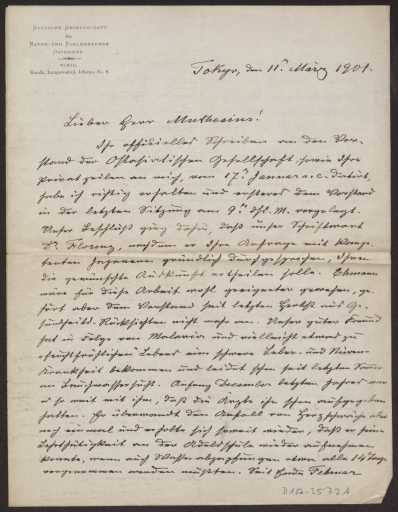 DEUTSCHE GESELLSCHAFT
für
NATUR- UND VÖLKERKUNDE
OSTASIENS
TOKIO.
Kanda, Imagawakoji, Ichōme No. 8.
Tokyo, den 11n. März 1901.
Lieber Herr Muthesius!
Ihr officielles Schreiben an den Vor-
stand der Ostasiatischen Gesellschaft, sowie Ihre
Privatzeilen an mich, vom 17n. Januar a.c. datirt,
habe ich richtig erhalten und ersteres dem Vorstand
in der letzten Sitzung am 9n. dss. M. vorgelegt.
Unser Beschluss ging dahin, dass unser Schriftwart
Dr. Florenz, nachdem er Ihre Anfrage mit kompe-
tenten Japanern gründlich durchgesprochen, Ihnen
die gewünschte Auskunft ertheilen solle. Ehmann
wäre für diese Arbeit wohl geeigneter gewesen, ge-
hört aber dem Vorstand seit letzten Herbst aus Ge-
sundheits-Rücksichten nicht mehr an. Unser guter Freund
hat in Folge von Malaria und vielleicht etwas zu
feuchtfröhlichen Lebens eine schwere Leber- und Nieren-
krankheit bekommen und leidet schon seit letzten Sommer
an Bauchwassersucht. Anfang December letzten Jahres war
es so weit mit ihm, dass die Ärzte ihn schon aufgegeben
hatten. Er überwand den Anfall von Herzschwäche aber
noch einmal und erholte sich soweit wieder, dass er seine
Lehrthätigkeit an der Adelsschule wieder aufnehmen
konnte, wenn auch Wasserabzapfungen etwa alle 14 Tage
vorgenommen werden mussten. Seit Ende Februar